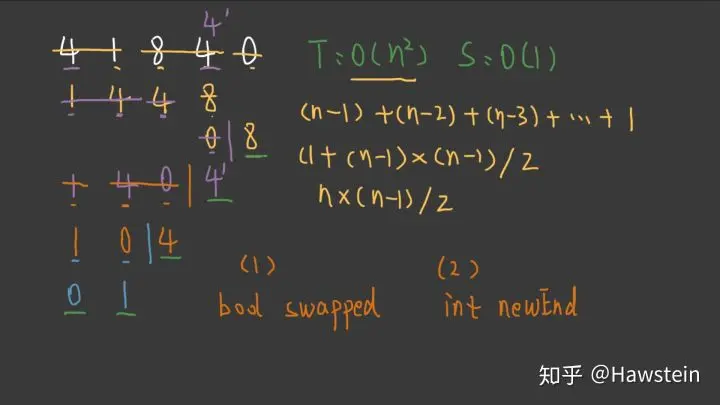 4'
4 1 8 4 0 T:O(n²) S:O(1)
1 4 4 8 (n-1)+(n-2)+(n-3)+…+1
0|8 (1+(n-1)×(n-1)/2
1 4 0|4' n×(n-1)/2
1 0|4 (1) (2)
0 1 bool swapped int newEnd
知乎 @Hawstein